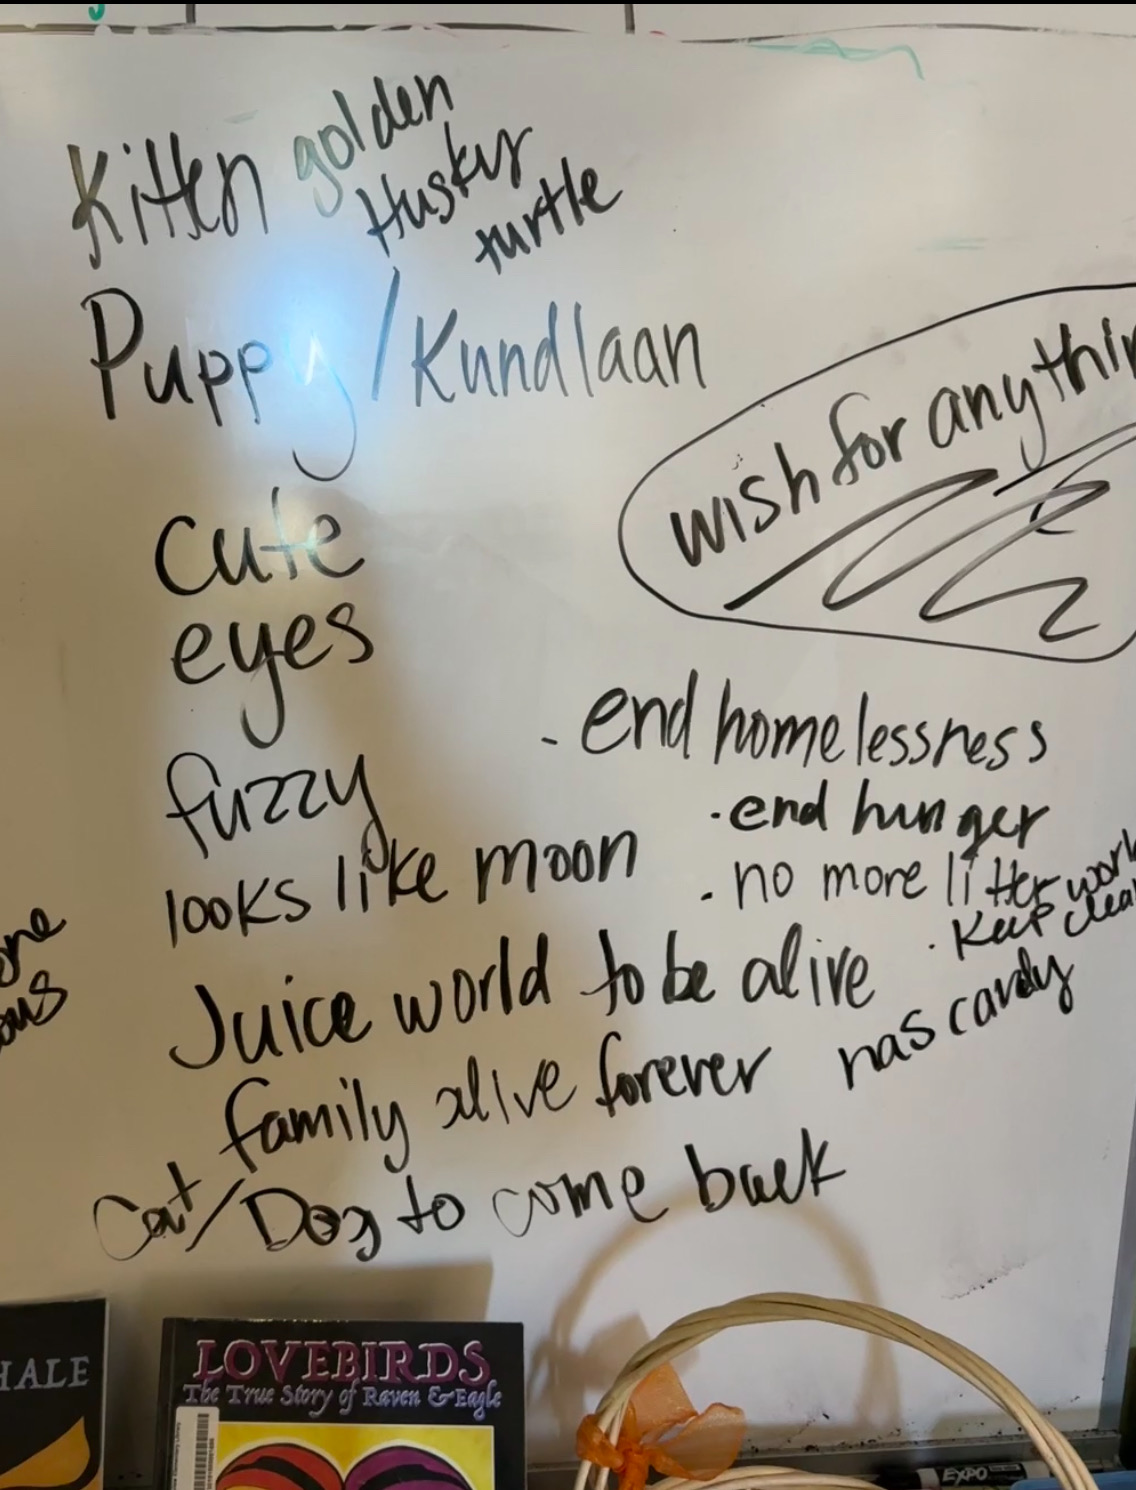 Kitten golden
Husky
turtle
Puppy/Kundlaan
wish for anythin
cute
eyes
fuzzy
looks like moon
- end homelessness
· end hunger
· no more litter
· Keep clea
Juice world to be alive
has candy
family alive forever
Cat/Dog to come back
HALE
LOVEBIRDS
The True Story of Raven & Eagle
EXPO